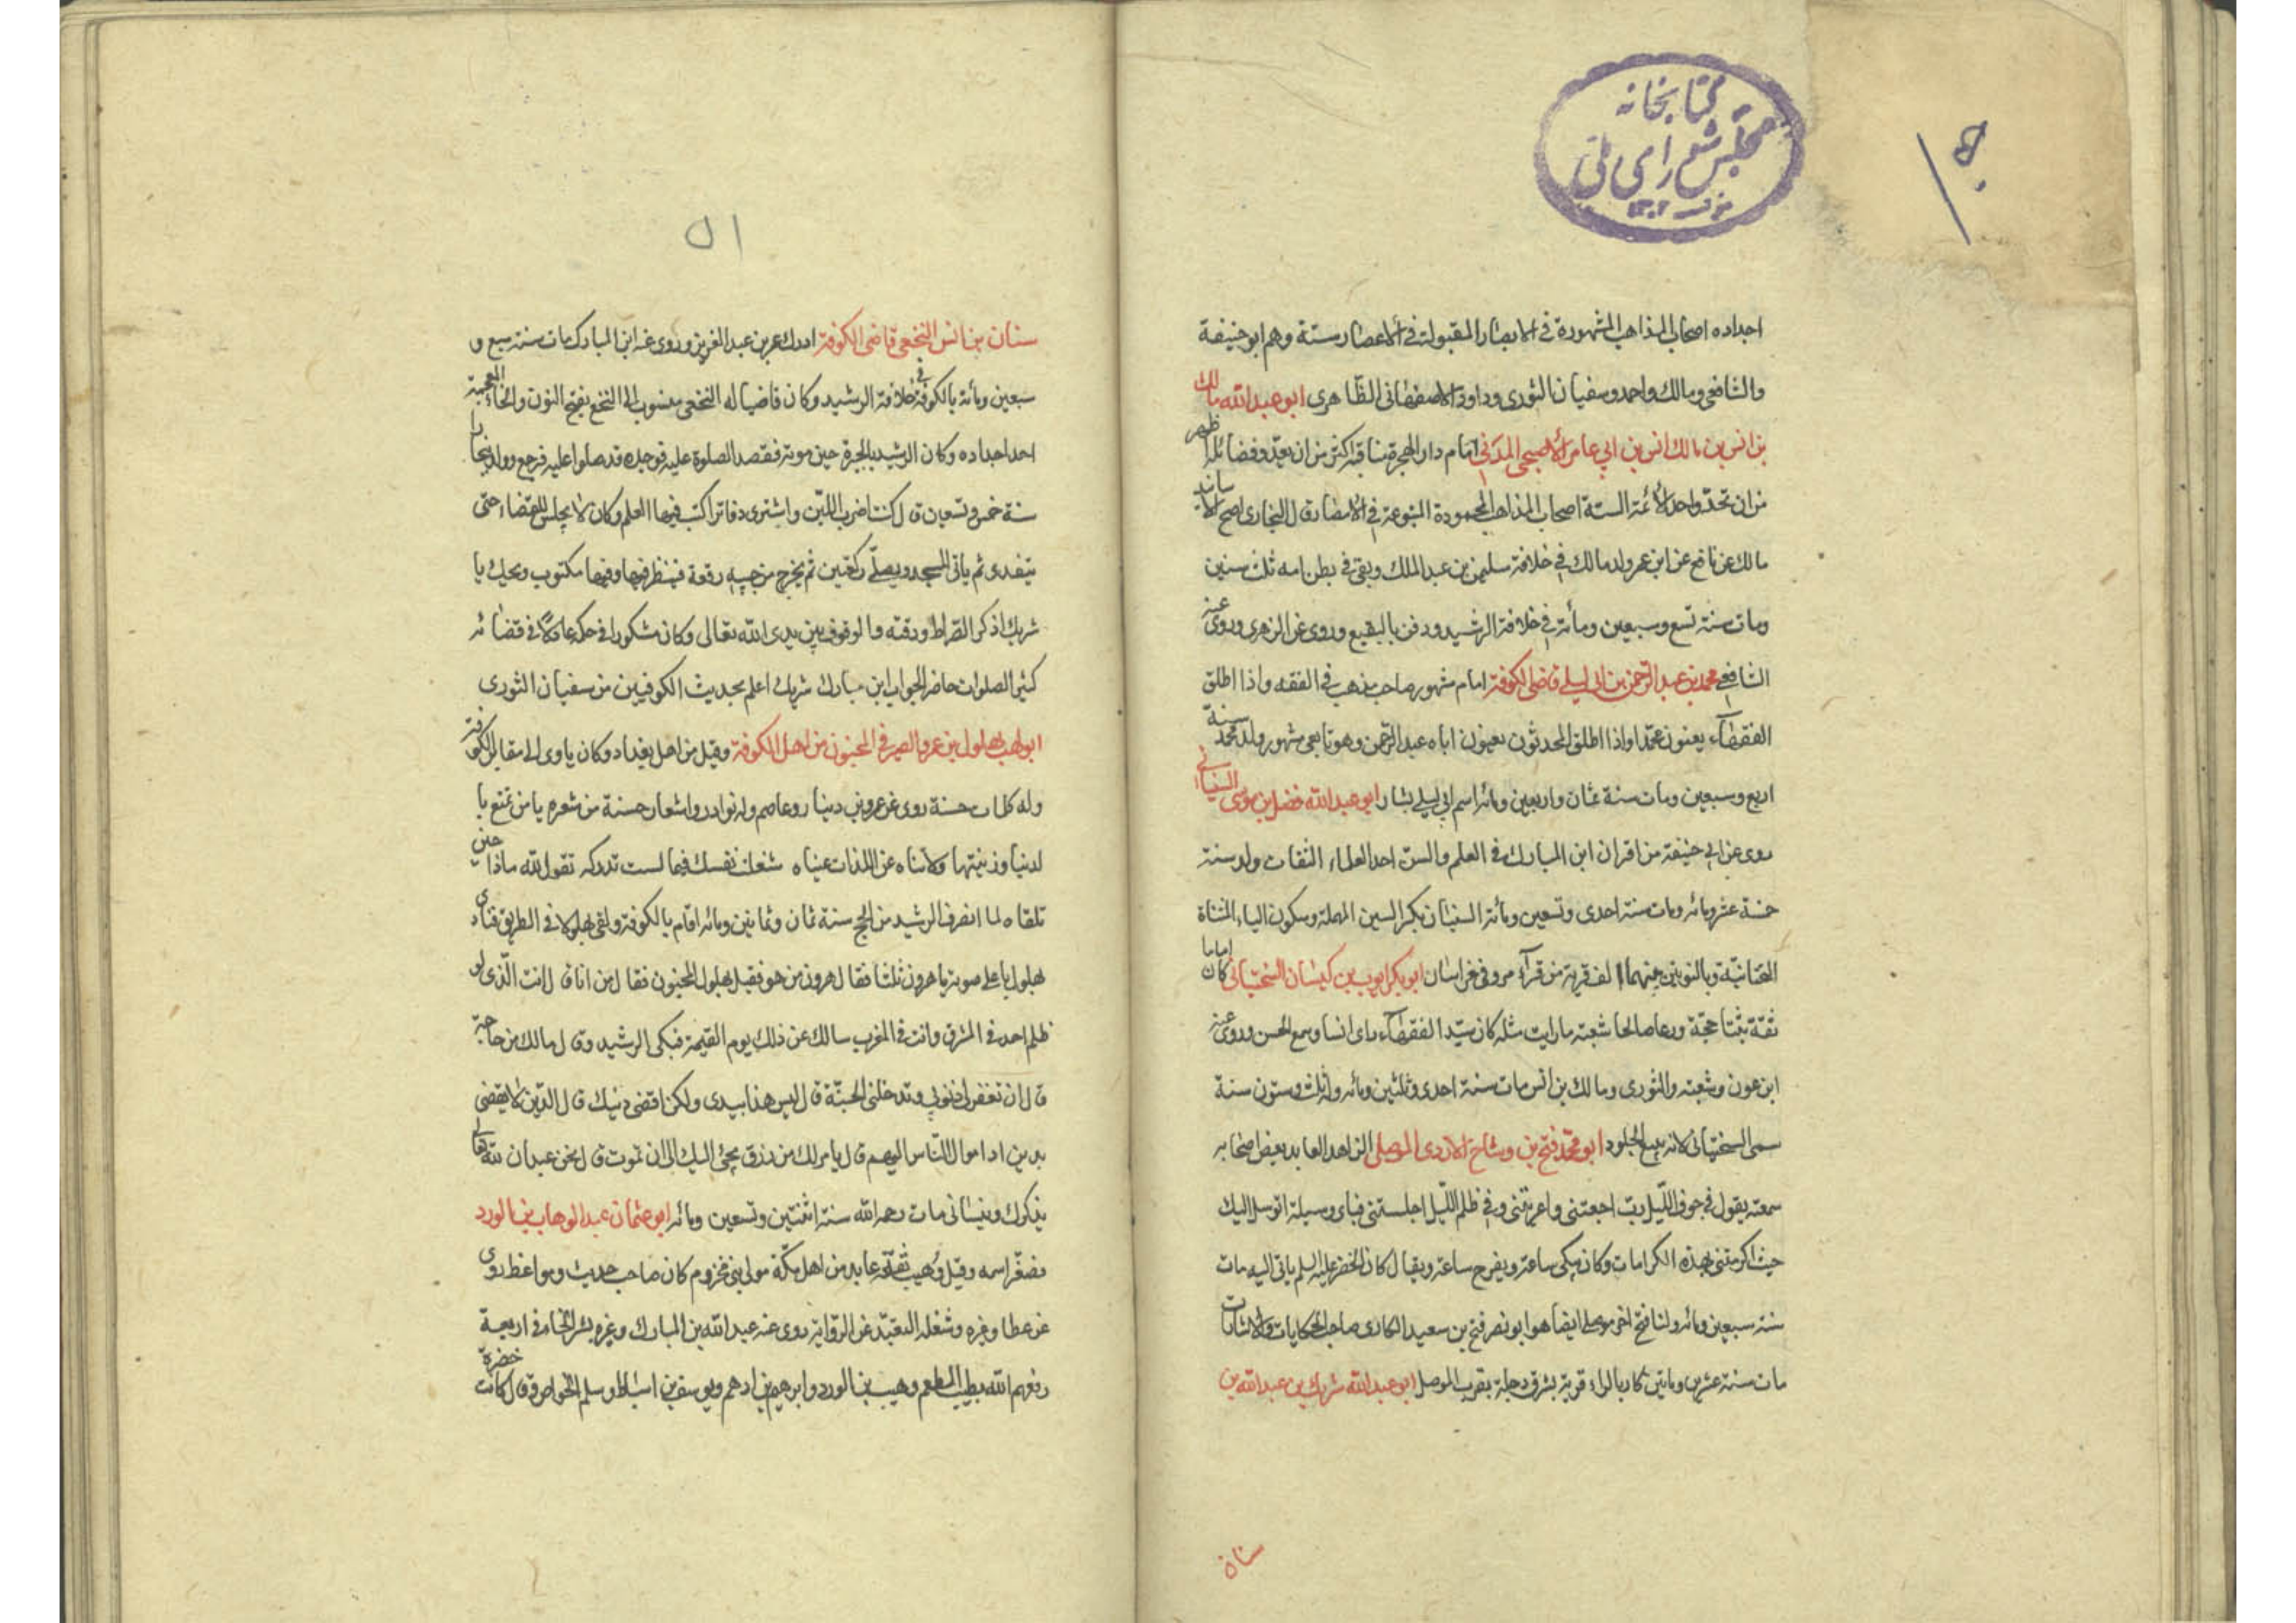 كتابخانه
مجلس شورای ملی
۱۳۰۲
اجداده اصحاب المذاهب المشهورة فى الامصار المقبولة فى الاعصار ستة وهم ابو حنيفة
والشافعى ومالك واحمد وسفيان الثورى وداود الاصفهانى الظاهرى ابو عبد الله مالك
بن انس بن مالك انس بن ابي عامر الأصبحى المدنى امام دار الهجرة مناقبه اكثر من ان يعد وفضائله اظهر
من ان تحد واحد الأئمة الستة اصحاب المذاهب المحمودة المتبوعة فى الأمصار قال البخارى اصح الاسانيد
مالك عن نافع عن ابن عمر ولد مالك فى خلافة سليمن بن عبد الملك وبقى فى بطن امه ثلث سنين
ومات سنة تسع وسبعين ومائة فى خلافة الرشيد ودفن بالبقيع وروى عن الزهرى وروى عنه
الشافعى محمد بن عبد الرحمن بن ابى ليلى قاضى الكوفة امام مشهور صاحب مذهب فى الفقه واذا اطلق
الفقهاء يعنون محمدا واذا اطلق المحدثون يعنون اباه عبد الرحمن وهو تابعى مشهور ولد محمد سنة
اربع وسبعين ومات سنة ثمان واربعين ومائه اسم ابى ليلى يشار ابو عبد الله فضل بن موسى السينانى
روى عن ابى حنيفة من اقران ابن المبارك فى العلم والسن احد العلماء الثقات ولد سنة
خمسة عشر ومائه ومات سنة احدى وتسعين ومائة السينان بكسر السين المهملة وسكون الياء المثناة
التحتانيّة وبالنونين بينهما الف قرية من قرآء مرو فى خراسان ابو بكر ايوب بن كيسان السختيانى كان اماما
ثقة ثبتا حجّة ورعا صالحا شعبة ما رايت مثله كان سيّد الفقهاء راى انسا وسمع الحسن وروى عنه
ابن عون وشعبة والثورى ومالك بن انس مات سنة احدى وثلثين ومائه وله ثلث وستون سنة
سمى السختيانى لانه يبيع الجلود ابو محمد فتح بن وشاح الازدى الموصلى الزاهد العابد بعض اصحابه
سمعته يقول فى جوف الليل ربّ اجعتنى واعريتنى وفى ظلم الليل اجلستنى فباى وسيلة اتوسل اليك
حيث اكرمتنى بهذه الكرامات وكان يبكى ساعة ويفرح ساعة ويقال كان الخضر عليه السلم ياتى اليه مات
سنة سبعين ومائه ولنا فتح اخر موصلى ايضا هو ابو نصر فتح بن سعيد الكارى صاحب الحكايات والاشارات
مات سنة عشرين وماتين كار بالراء قرية بشرق دجلة بقرب الموصل ابو عبد الله شريك بن عبد الله بن
سنان
٥١
سنان بن انس النخعى قاضى الكوفة ادرك عمر بن عبد العزيز وروى عنه ابن المبارك مات سنة سبع و
سبعين ومائة بالكوفة فى خلافة الرشيد وكان قاضيا له النخعى منسوب الى النخع بفتح النون والخاء المعجمة
احد اجداده وكان الرشيد بالحيرة حين موته فقصد الصلوة عليه فوجده قد صلوا عليه فرجع وولد ببخارا
سنة خمس وتسعين قال كنت اضرب اللبّن واشترى دفاتر اكتب فيها العلم وكان لا يجلس للقضاء حتى
يتغدى ثم ياتى المسجد ويصلّى ركعتين ثم يخرج من جيبه رقعة فينظر فيها وفيها مكتوب ويحك يا
شريك اذكر الصراط ودقته والوقوف بين يدى الله تعالى وكان مشكورا فى حكمه عادلا فى قضائه
كثير الصلوات حاضر الجواب ابن مبارك شريك اعلم بحديث الكوفيين من سفيان الثورى
ابو وهب بهلول بن عمرو الصيرفى المجنون من اهل الكوفة وقيل من اهل بغداد وكان ياوى الى مقابر الكوفة
وله كلمات حسنة روى عن عمرو بن دينار وعاصم وله نوادر واشعار حسنة من شعره يا من تمتع با
لدنيا وزينتها ولا تنام عن اللذات عيناه شغلت نفسك فيما لست تدركه تقول لله ماذا حين
تلقاه لما انصرف الرشيد من الحج سنة ثمان وثمانين ومائه اقام بالكوفة ولقى بهلولا فى الطريق فنادى
بهلول باعلى صوته يا هرون ثلثا فقال هرون من هو فقيل بهلول المجنون فقال من انا قال انت الّذى لو
ظلم احد فى المشرق وانت فى المغرب سالك عن ذلك يوم القيمة فبكى الرشيد وقال مالك من حاجة
قال ان تغفر لى ذنوبى وتدخلنى الجنّة قال ليس هذا بيدى ولكن اقضى دينك قال الدين لا يقضى
بدين اد اموال الناس اليهم قال يامر لك من رزق يجئ اليك الى ان تموت قال نحن عبدان لله تعالى
يذكرك وينسانى مات رحمه الله سنة اثنتين وتسعين ومائه ابو عثمان عبد الوهاب بن الورد
نصغّر اسمه وقيل وهيب ثقة عابد من اهل مكّة مولى بنى مخزوم كان صاحب حديث ومواعظ روى
عن عطا وغيره وشغله التعبّد عن الرّواية روى عنه عبد الله بن المبارك وغيره بشر الحافى اربعة
رفعهم الله بطيب المطعم وهيب بن الورد وابرهيم بن ادهم ويوسف بن اسباط وسلم الخواص وقال كانت خضرة